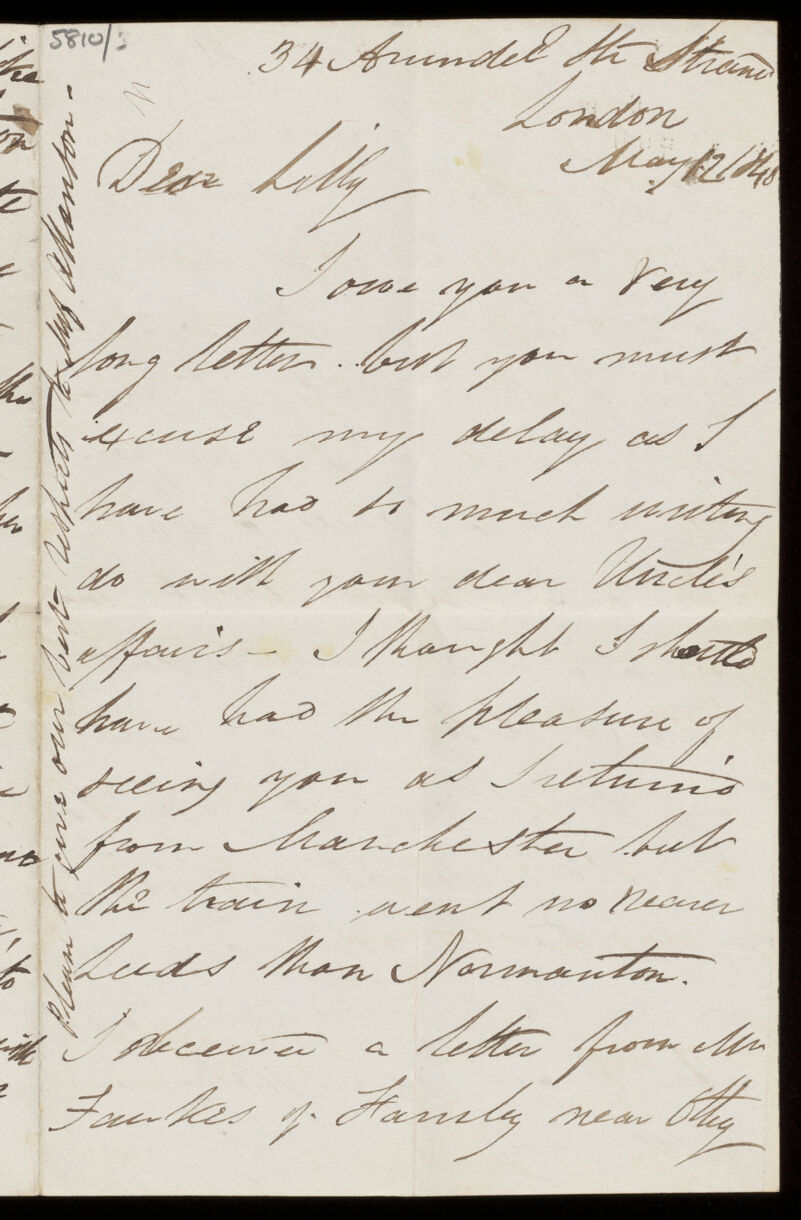 5810/3
34 Arundel St Strand
London
May 12/48
Dear Lilly
I owe you a very
long letter. but you must
excuse my delay as I
have had so much writing
do with your dear Uncle's
affairs - I thought I should
have had the pleasure of
seeing you as I return'd
from Manchester but
the train went no nearer
Leeds than Normanton.
I received a letter from Mr
Fawkes of Farnley near Otley
Please to give our best respects to Mrs